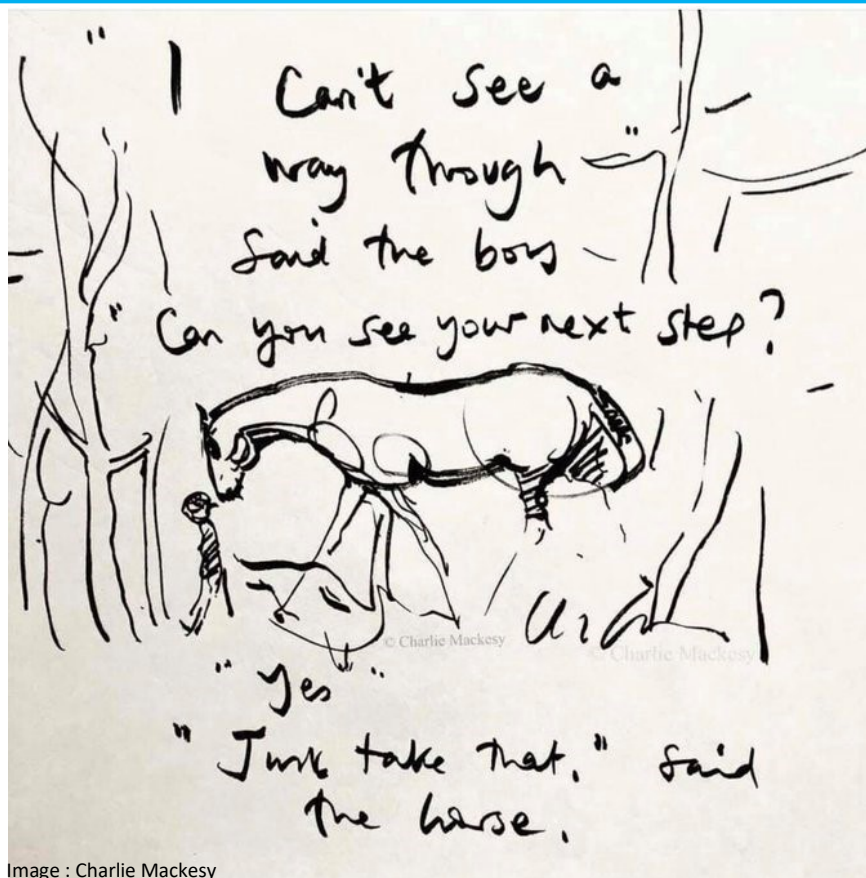 "I Can't see a
way through"
said the boy
"Can you see your next step?
© Charlie Mackesy
© Charlie Mackesy
"Yes"
"Just take that." said
the horse.
Image : Charlie Mackesy